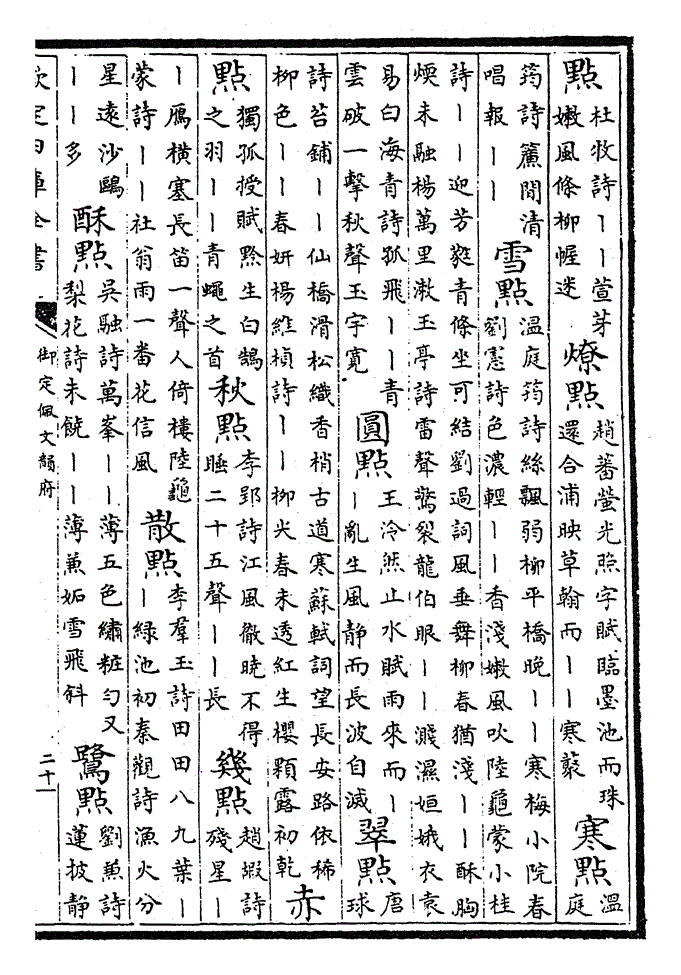 點 杜牧詩丨丨萱芽
嫩風條柳幄迷
燎點 趙蕃螢光照字賦臨墨池而珠
還合浦映草翰而丨丨寒藂
寒點 溫
庭
筠詩簾間清
唱報丨丨
雪點 溫庭筠詩絲飄弱柳平橋晚丨丨寒梅小院春
劉憲詩色濃輕丨丨香淺嫩風吹陸龜蒙小桂
詩丨丨迎芳甤青條坐可結劉過詞風垂舞柳春猶淺丨丨酥胸
煗未融楊萬里漱玉亭詩雷聲驚裂龍伯眼丨丨濺濕姮娥衣袁
易白海青詩孤飛丨丨青
雲破一擊秋聲玉宇寬
圓點 王泠然止水賦雨來而丨
丨亂生風靜而長波自滅
翠點 唐
球
詩苔鋪丨丨仙橋滑松織香梢古道寒蘇軾詞望長安路依稀
柳色丨丨春妍楊維楨詩丨丨柳光春未透紅生櫻顆露初乾
赤
點 獨孤授賦黔生白鵠
之羽丨丨青蠅之首
秋點 李郢詩江風徹曉不得
睡二十五聲丨丨長
幾點 趙嘏詩
殘星丨
丨鴈橫塞長笛一聲人倚樓陸龜
蒙詩丨丨社翁雨一番花信風
散點 李羣玉詩田田八九葉丨
丨綠池初秦觀詩漁火分
星遠沙鷗
丨丨多
酥點 吳融詩萬峯丨丨薄五色繡粧勻又
梨花詩未饒丨丨薄兼妬雪飛斜
鷺點 劉兼詩
蓮披靜
欽定四庫全書
御定佩文韻府
二十一